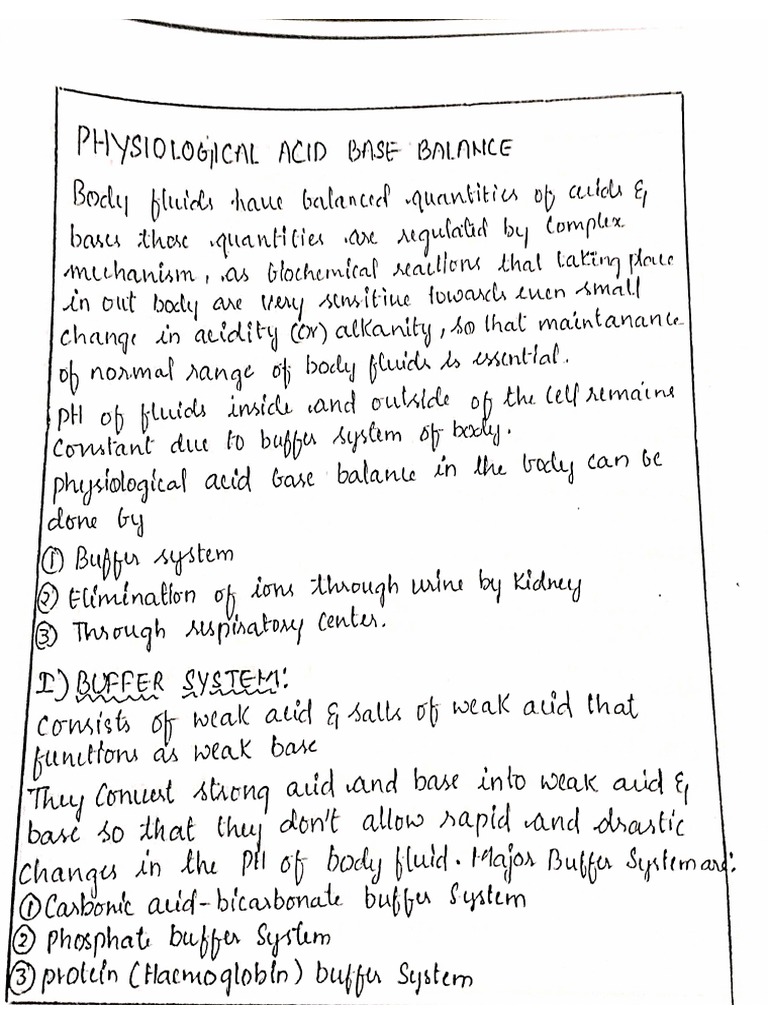 PHYSIOLOGICAL ACID BASE BALANCE
Body fluids have balanced quantities of acids &
bases those quantities are regulated by complex
mechanism, as biochemical reactions that taking place
in out body are very sensitive towards even small
change in acidity (or) alkanity, so that maintanance
of normal range of body fluids is essential.
pH of fluids inside and outside of the cell remains
constant due to buffer system of body.
physiological acid base balance in the body can be
done by
① Buffer system
② Elimination of ions through urine by Kidney
③ Through respiratory center.
I) BUFFER SYSTEM:
consists of weak acid & salts of weak acid that
functions as weak base
They convert strong acid and base into weak acid &
base so that they don't allow rapid and drastic
changes in the PH of body fluid. Major Buffer System are:
① Carbonic acid-bicarbonate buffer System
② Phosphate buffer System
③ protein (Haemoglobin) buffer System